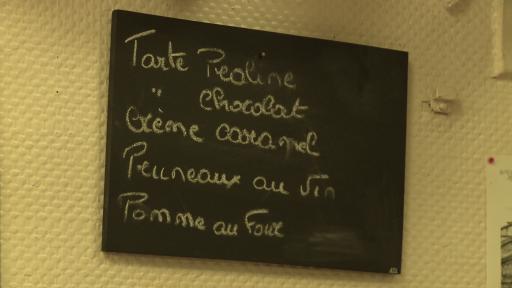 Tarte Praline
" Chocolat
Crème caramel
Pruneaux au Vin
Pomme au Four